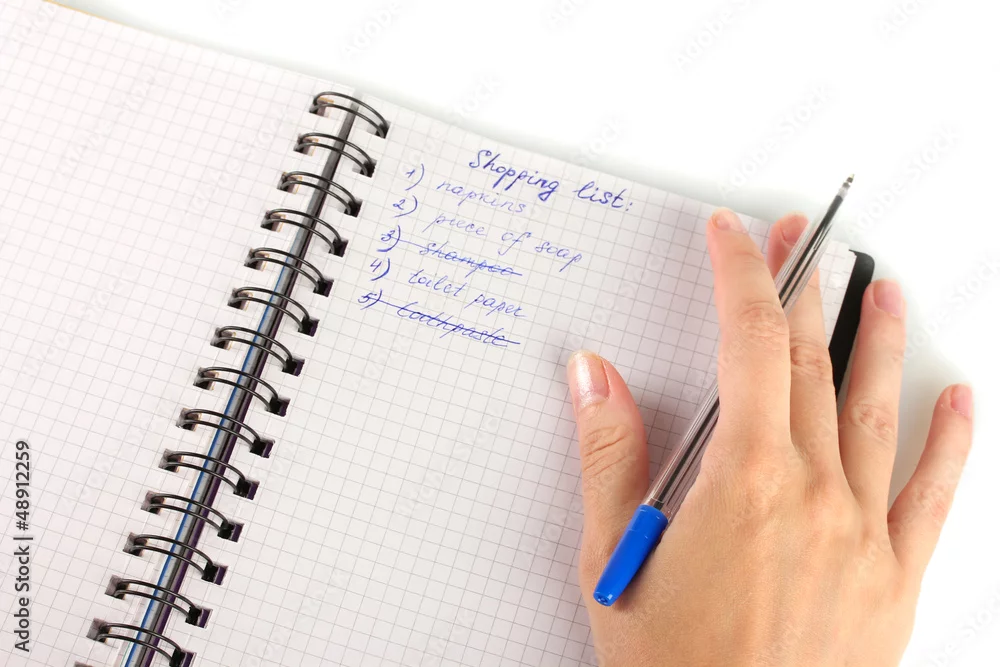 Shopping list:
1) napkins
2) piece of soap
3) shampoo
4) toilet paper
5) toothpaste
Adobe Stock | #48912259